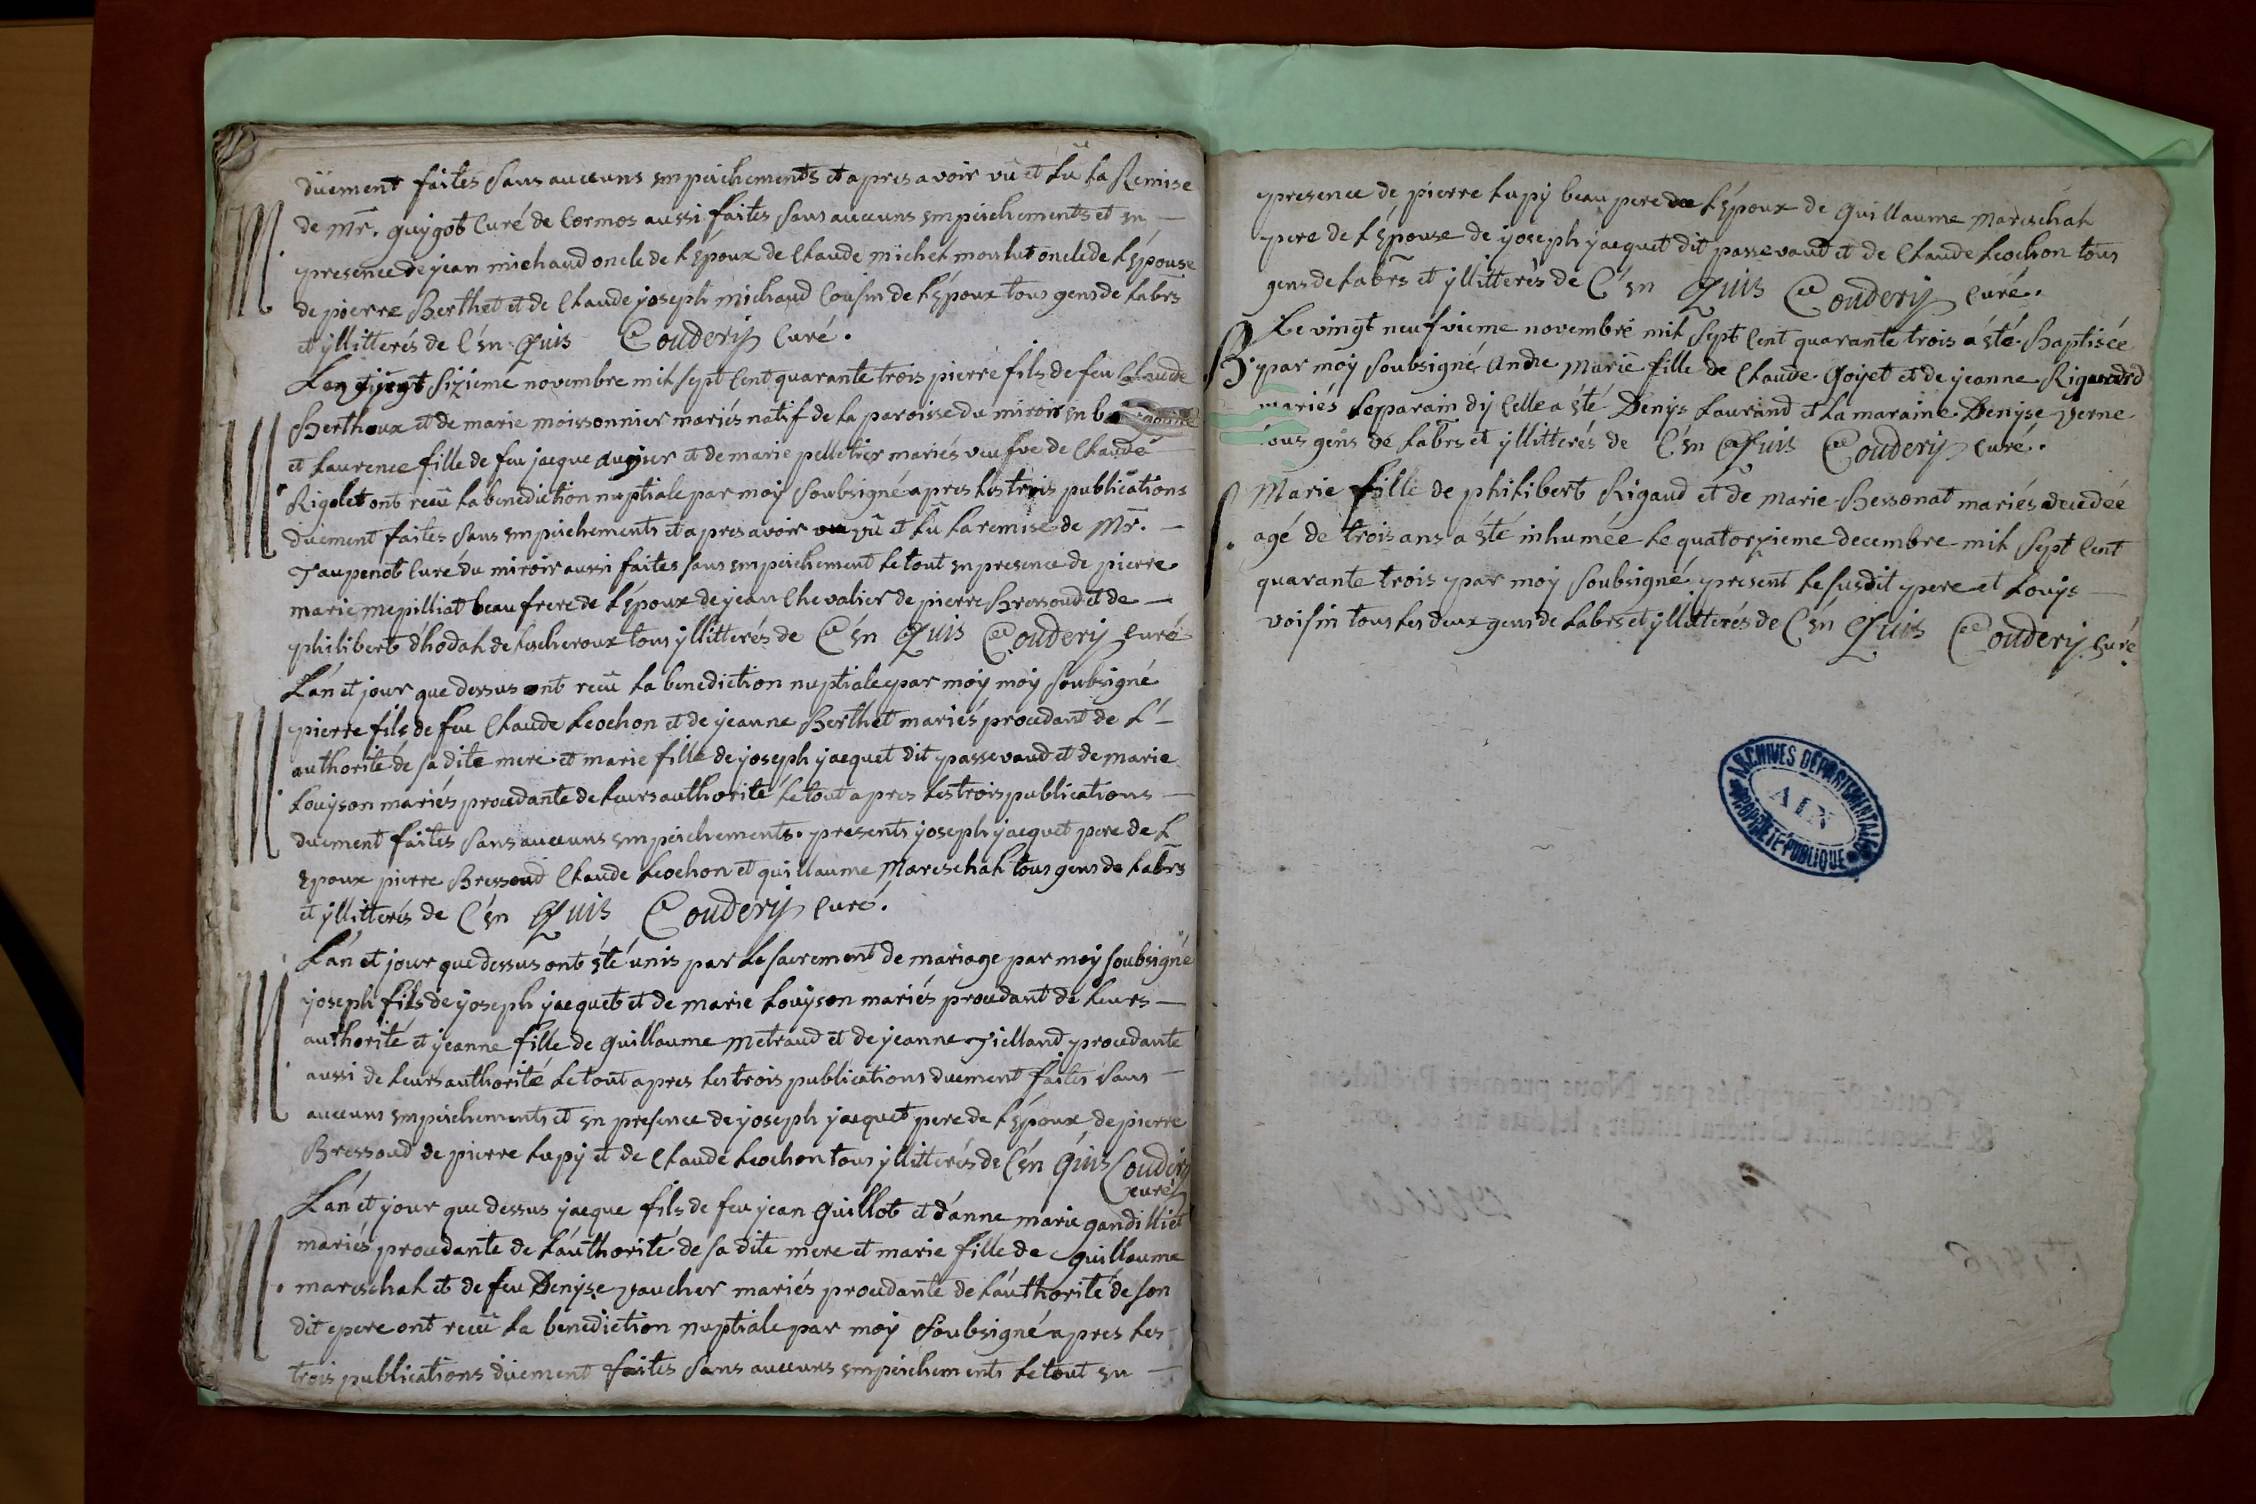 düement faites sans aucuns empeichements et apres avoir vû et lû la Remise
de Mr. guygot Curé de Cormos aussi faites sans aucuns empeichements et en
presence de jean michaud oncle de l'Époux de Claude michel oncle de l'Épouse
de pierre Berthet et de Claude joseph michaud Cousin de l'Époux tous gens de labrs
et yllitterés de C'en Quis Couderij Curé.
Le vingt sizieme novembre mil sept cent quarante trois pierre fils de feu Claude
Berthoux et de marie moissonnier mariés natif de la paroisse du miroir en
et Laurence fille de feu jacque augier et de marie pelletier mariés veufve de Claude
Rigolet ont reçû la benediction nuptiale par moy soubsigné apres les trois publications
düement faites sans empeichements et apres avoir vû et lû la remise de Mr.
Taupenot Curé du miroir aussi faites sans empeichement le tout en presence de pierre
marie mepilliat beau frere de l'Époux de jean Chevalier de pierre Bressoud et de
philibert d'hodal de lescheroux tous yllitterés de C'en Quis Couderij Curé
L'an et jour que dessus ont reçû la benediction nuptiale par moy moy soubsigné
pierre fils de feu Claude Leochon et de jeanne Berthet mariés procedant de l'
authorité de sa dite mere et marie fille de joseph jacquet dit passevaud et de marie
Louyson mariés procedante de leurs authorité le tout apres les trois publications
düement faites sans aucuns empeichements. presents joseph jacquet pere de l'
Epoux pierre Bressoud Claude Leochon et guillaume Mareschal tous gens de labrs
et yllitterés de C'en Quis Couderij Curé.
L'an et jour que dessus ont été unis par le sacrement de mariage par moy soubsigné
joseph fils de joseph jacquet et de marie Louyson mariés procedant de leurs
authorité et jeanne fille de guillaume metraud et de jeanne vielland procedante
aussi de leurs authorité le tout apres les trois publications duement faites sans
aucuns empeichements et en presence de joseph jacquet pere de l'Époux de pierre
Bressoud de pierre Lupy et de Claude Leochon tous yllitterés de C'en Quis Couderij
Curé
L'an et jour que dessus jacque fils de feu jean Guillot et d'anne marie gandilliet
mariés procedante de l'authorité de sa dite mere et marie fille de guillaume
mareschal et de feu Denyse vaucher mariés procedante de l'authorité de son
dit pere ont reçû la benediction nuptiale par moy soubsigné apres les
trois publications düement faites sans aucuns empeichements le tout en
presence de pierre Lupy beau pere de l'Époux de guillaume mareschal
pere de l'Épouse de joseph jacquet dit passevaud et de Claude Leochon tous
gens de labrs et yllitterés de C'en Quis Couderij Curé.
Le vingt neufvieme novembre mil sept cent quarante trois a été Baptisée
B. par moy soubsigné Andre marie fille de Claude Goyet et de jeanne
mariés le parain d'ycelle a été Denys Laurand et la maraine Denyse verne
tous gens de labrs et yllitterés de C'en Quis Couderij Curé.
Marie fille de philibert Rigaud et de marie Bessonat mariés decedée
agé de trois ans a été inhumée le quatorzieme decembre mil sept cent
quarante trois par moy soubsigné present le susdit pere et Louys
voisin tous les deux gens de labrs et yllitterés de C'en Quis Couderij Curé
ARCHIVES DÉPARTEMENTALES
AIN
PROPRIÉTÉ PUBLIQUE